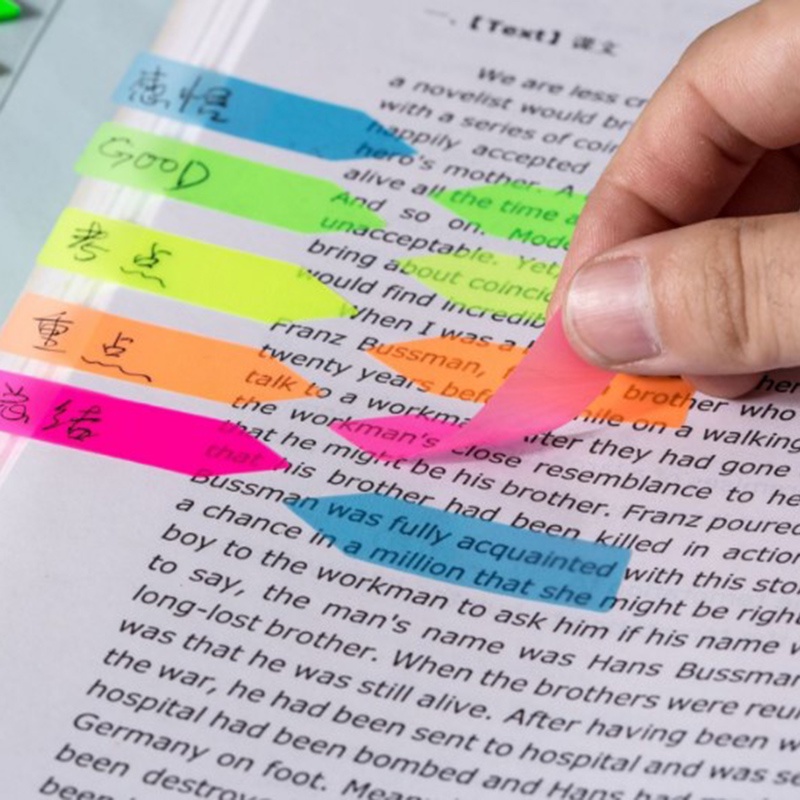 一、【Text】课文
We are less
a novelist would
with a series of
happily accepted
hero's mother. A
alive all the time
And so on.
unacceptable. Yet,
bring about
would find
When I was a
Franz Bussman,
brother who
twenty years
on a walking
talk to a
After they had gone
the workman's close resemblance to
that he might be his brother. Franz poured
that his brother had been killed in action
Bussman was fully acquainted with this
a chance in a million that she might be right
boy to the workman to ask him if his name
to say, the man's name was Hans Bussman
long-lost brother. When the brothers were
was that he was still alive. After having been
the war, he had been sent to hospital and was
hospital had been bombed and Hans had
Germany on foot.
been
been
感悟
GOOD
考点
重点
总结